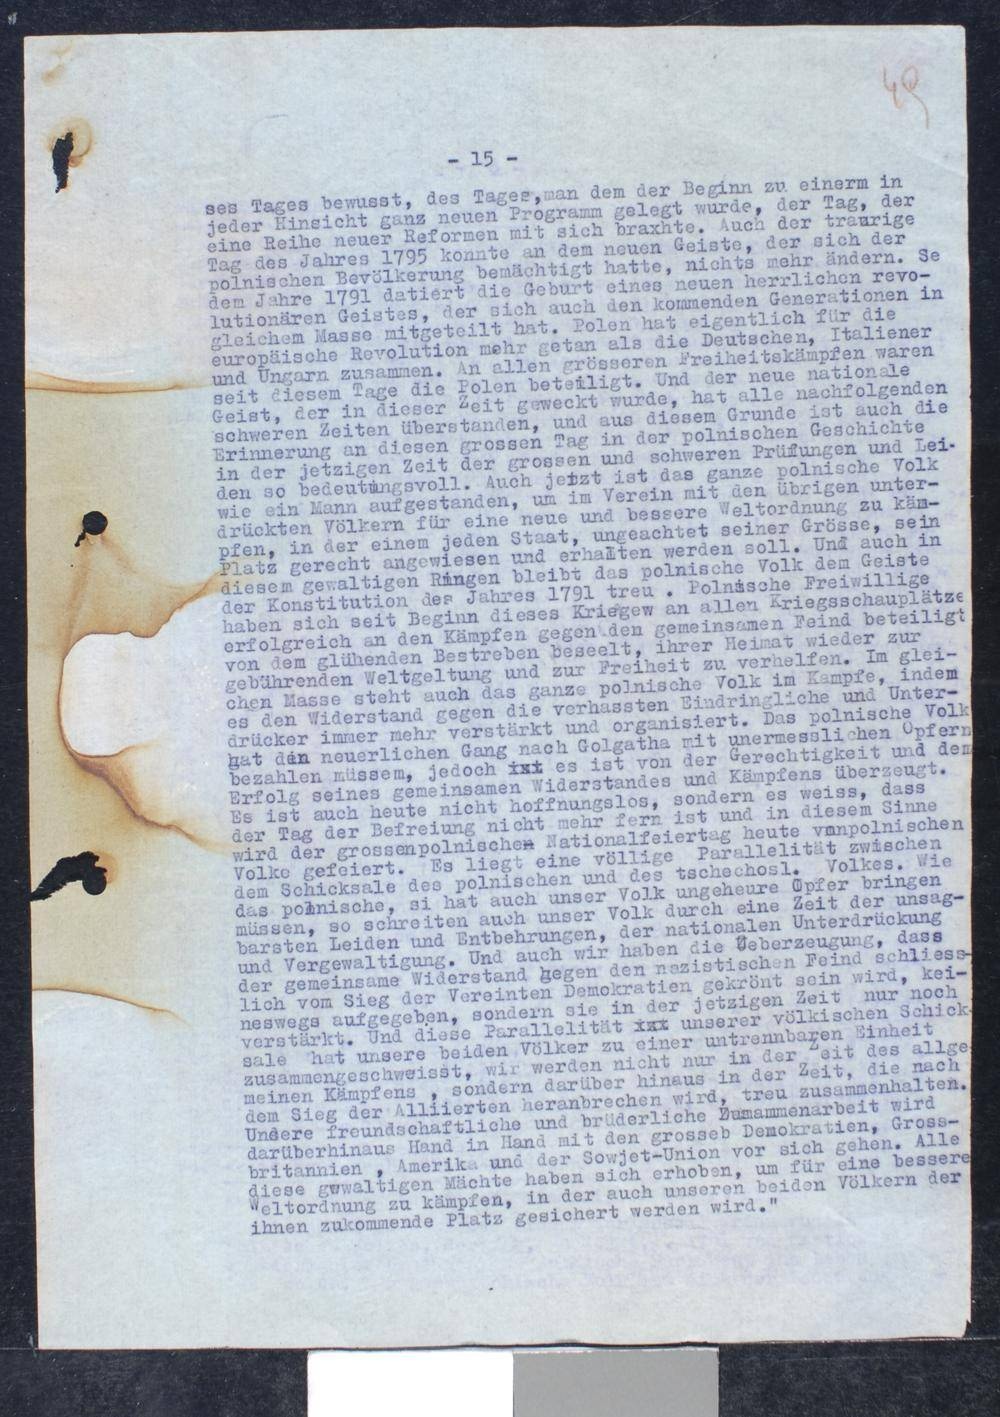 49
- 15 -
ses Tages bewusst, des Tages,man dem der Beginn zu einerm in
jeder Hinsicht ganz neuen Programm gelegt wurde, der Tag, der
eine Reihe neuer Reformen mit sich braxhte. Auch der traurige
Tag des Jahres 1795 konnte an dem neuen Geiste, der sich der
polnischen Bevölkerung bemächtigt hatte, nichts mehr ändern. Se
dem Jahre 1791 datiert die Geburt eines neuen herrlichen revo-
lutionären Geistes, der sich auch den kommenden Generationen in
gleichem Masse mitgeteilt hat. Polen hat eigentlich für die
europäische Revolution mehr getan als die Deutschen, Italiener
und Ungarn zusammen. An allen grösseren Freiheitskämpfen waren
seit diesem Tage die Polen beteiligt. Und der neue nationale
Geist, der in dieser Zeit geweckt wurde, hat alle nachfolgenden
schweren Zeiten überstanden, und aus diesem Grunde ist auch die
Erinnerung an diesen grossen Tag in der polnischen Geschichte
in der jetzigen Zeit der grossen und schweren Prüfungen und Lei-
den so bedeutungsvoll. Auch jetzt ist das ganze polnische Volk
wie ein Mann aufgestanden, um im Verein mit den übrigen unter-
drückten Völkern für eine neue und bessere Weltordnung zu käm-
pfen, in der einem jeden Staat, ungeachtet seiner Grösse, sein
Platz gerecht angewiesen und erhalten werden soll. Und auch in
diesem gewaltigen Ringen bleibt das polnische Volk dem Geiste
der Konstitution des Jahres 1791 treu . Polnische Freiwillige
haben sich seit Beginn dieses Kriegew an allen Kriegsschauplätze
erfolgreich an den Kämpfen gegen den gemeinsamen Feind beteiligt
von dem glühenden Bestreben beseelt, ihrer Heimat wieder zur
gebührenden Weltgeltung und zur Freiheit zu verhelfen. Im glei-
chen Masse steht auch das ganze polnische Volk im Kampfe, indem
es den Widerstand gegen die verhassten Eindringliche und Unter-
drücker immer mehr verstärkt und organisiert. Das polnische Volk
hat den neuerlichen Gang nach Golgatha mit unermesslichen Opfern
bezahlen müssem, jedoch ixt es ist von der Gerechtigkeit und dem
Erfolg seines gemeinsamen Widerstandes und Kämpfens überzeugt.
Es ist auch heute nicht hoffnungslos, sondern es weiss, dass
der Tag der Befreiung nicht mehr fern ist und in diesem Sinne
wird der grossenpolnischen Nationalfeiertag heute vonpolnischen
Volke gefeiert. Es liegt eine völlige Parallelität zwischen
dem Schicksale des polnischen und des tschechosl. Volkes. Wie
das polnische, si hat auch unser Volk ungeheure Opfer bringen
müssen, so schreiten auch unser Volk durch eine Zeit der unsag-
barsten Leiden und Entbehrungen, der nationalen Unterdrückung
und Vergewaltigung. Und auch wir haben die Ueberzeugung, dass
der gemeinsame Widerstand gegen den nazistischen Feind schliess-
lich vom Sieg der Vereinten Demokratien gekrönt sein wird, kei-
neswegs aufgegeben, sondern sie in der jetzigen Zeit nur noch
verstärkt. Und diese Parallelität ixt unserer völkischen Schick-
sale hat unsere beiden Völker zu einer untrennbaren Einheit
zusammengeschweisst, wir werden nicht nur in der Zeit des allge
meinen Kämpfens , sondern darüber hinaus in der Zeit, die nach
dem Sieg der Alliierten heranbrechen wird, treu zusammenhalten.
Unsere freundschaftliche und brüderliche Zusammenarbeit wird
darüberhinaus Hand in Hand mit den grosseb Demokratien, Gross-
britannien , Amerika und der Sowjet-Union vor sich gehen. Alle
diese gewaltigen Mächte haben sich erhoben, um für eine bessere
Weltordnung zu kämpfen, in der auch unseren beiden Völkern der
ihnen zukommende Platz gesichert werden wird."